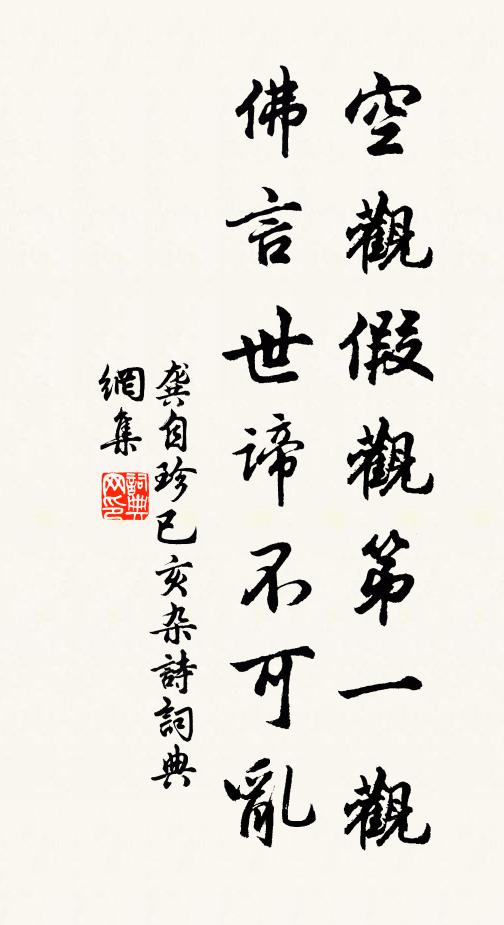 空觀假觀第一觀
佛言世諦不可亂
龔自珍己亥杂詩詞典
網集
詞典
网印